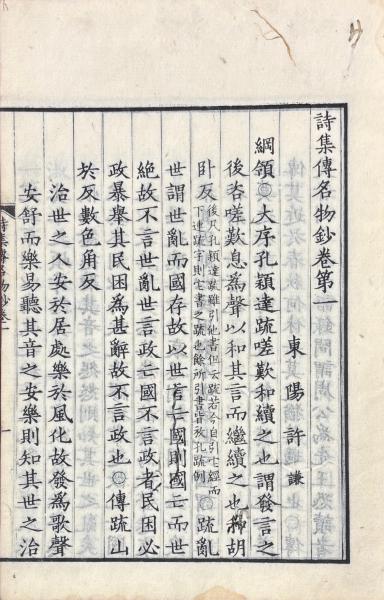 詩集傳名物鈔卷第一
東陽許謙
綱領○大序孔穎達疏嗟歎和續之也謂發言之
後咨嗟歎息爲聲以和其言而繼續之也 胡
卧反 後凡孔穎達疏雖引他書但云疏若今自引七經而
下連疏字則它書之疏也餘所引書皆放孔疏例 ○疏亂
世謂世亂而國存故以世言亡國則國亡而世
絶故不言世亂世言政亡國不言政者民困必
政暴舉其民困爲甚辭故不言政也○傳疏山
於反數色角反
治世之人安於居處樂於風化故發爲歌聲
安舒而樂易聽其音之安樂則知其世之治
詩集傳名物鈔卷一
一